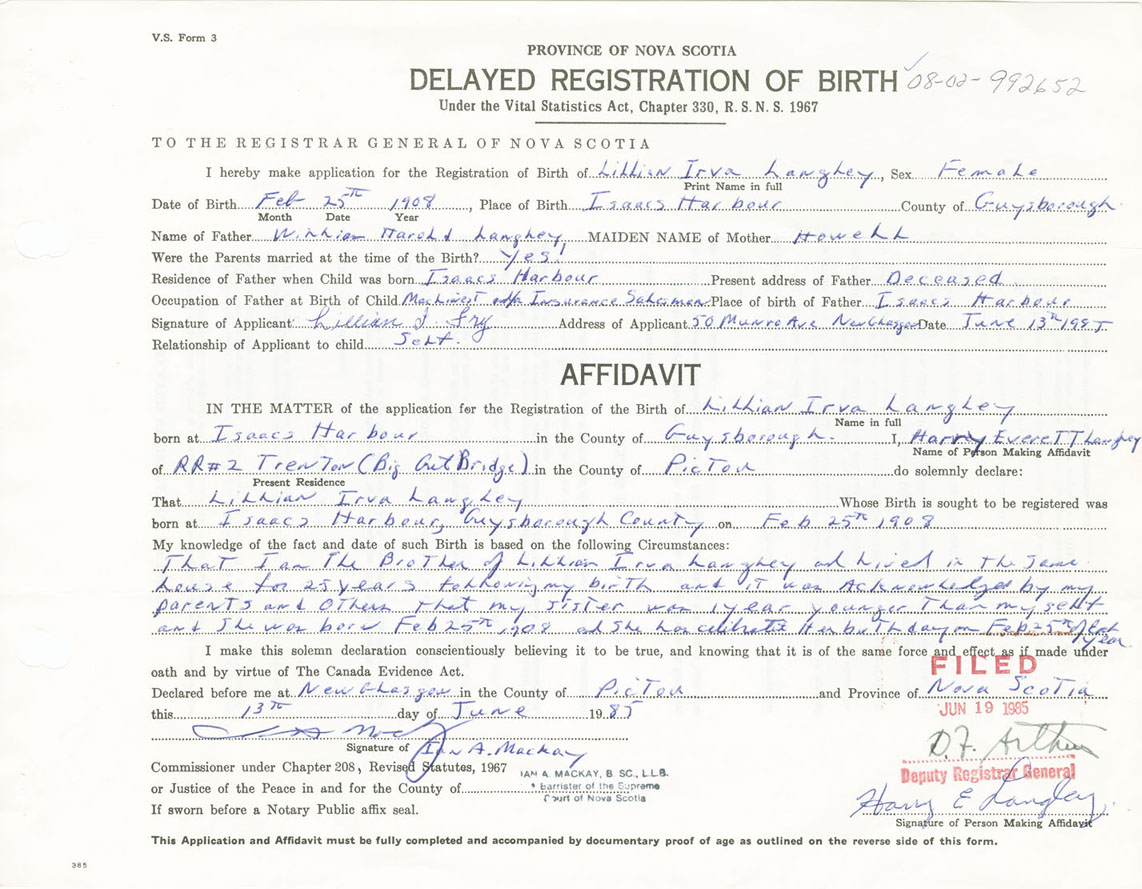 V.S. Form 3
PROVINCE OF NOVA SCOTIA
DELAYED REGISTRATION OF BIRTH 08-02-992652
Under the Vital Statistics Act, Chapter 330, R.S.N.S. 1967
TO THE REGISTRAR GENERAL OF NOVA SCOTIA
I hereby make application for the Registration of Birth of Lillian Irva Langley, Sex Female
Print Name in full
Date of Birth Feb 25th 1908, Place of Birth Isaacs Harbour County of Guysborough.
Month Date Year
Name of Father William Harold Langley, MAIDEN NAME of Mother Howell
Were the Parents married at the time of the Birth? Yes
Residence of Father when Child was born Isaacs Harbour Present address of Father Deceased
Occupation of Father at Birth of Child Machinest Insurance Salesman Place of birth of Father Isaacs Harbour
Signature of Applicant: Lillian I. Fry Address of Applicant 50 Munro Ave New Glasgow Date June 13th 1985
Relationship of Applicant to child Self.
AFFIDAVIT
IN THE MATTER of the application for the Registration of the Birth of Lillian Irva Langley
Name in full
born at Isaacs Harbour in the County of Guysborough. I, Harry Everett Langley
Name of Person Making Affidavit
of RR#2 Trenton (Big Gut Bridge) in the County of Pictou do solemnly declare:
Present Residence
That Lillian Irva Langley Whose Birth is sought to be registered was
born at Isaacs Harbour, Guysborough County on Feb 25th 1908
My knowledge of the fact and date of such Birth is based on the following Circumstances:
That I am The Brother of Lillian Irva Langley and lived in the same
house for 25 years following my birth and it was Acknowledged by my
parents and others that my sister was 1 year younger than my self
and she was born Feb 25th, 1908 and she has celibrate Her birthday on Feb 25th each year
I make this solemn declaration conscientiously believing it to be true, and knowing that it is of the same force and effect as if made under
oath and by virtue of The Canada Evidence Act.
FILED
Declared before me at New Glasgow in the County of Pictou and Province of Nova Scotia
this 13th day of June 1985
JUN 19 1985
Signature of Ian A. Mackay
D.F. Arthur
Commissioner under Chapter 208, Revised Statutes, 1967
IAN A. MACKAY, B. SC., LL.B.
Deputy Registrar General
or Justice of the Peace in and for the County of
barrister of the Supreme
Court of Nova Scotia
Harry E Langley
If sworn before a Notary Public affix seal.
Signature of Person Making Affidavit
This Application and Affidavit must be fully completed and accompanied by documentary proof of age as outlined on the reverse side of this form.
385